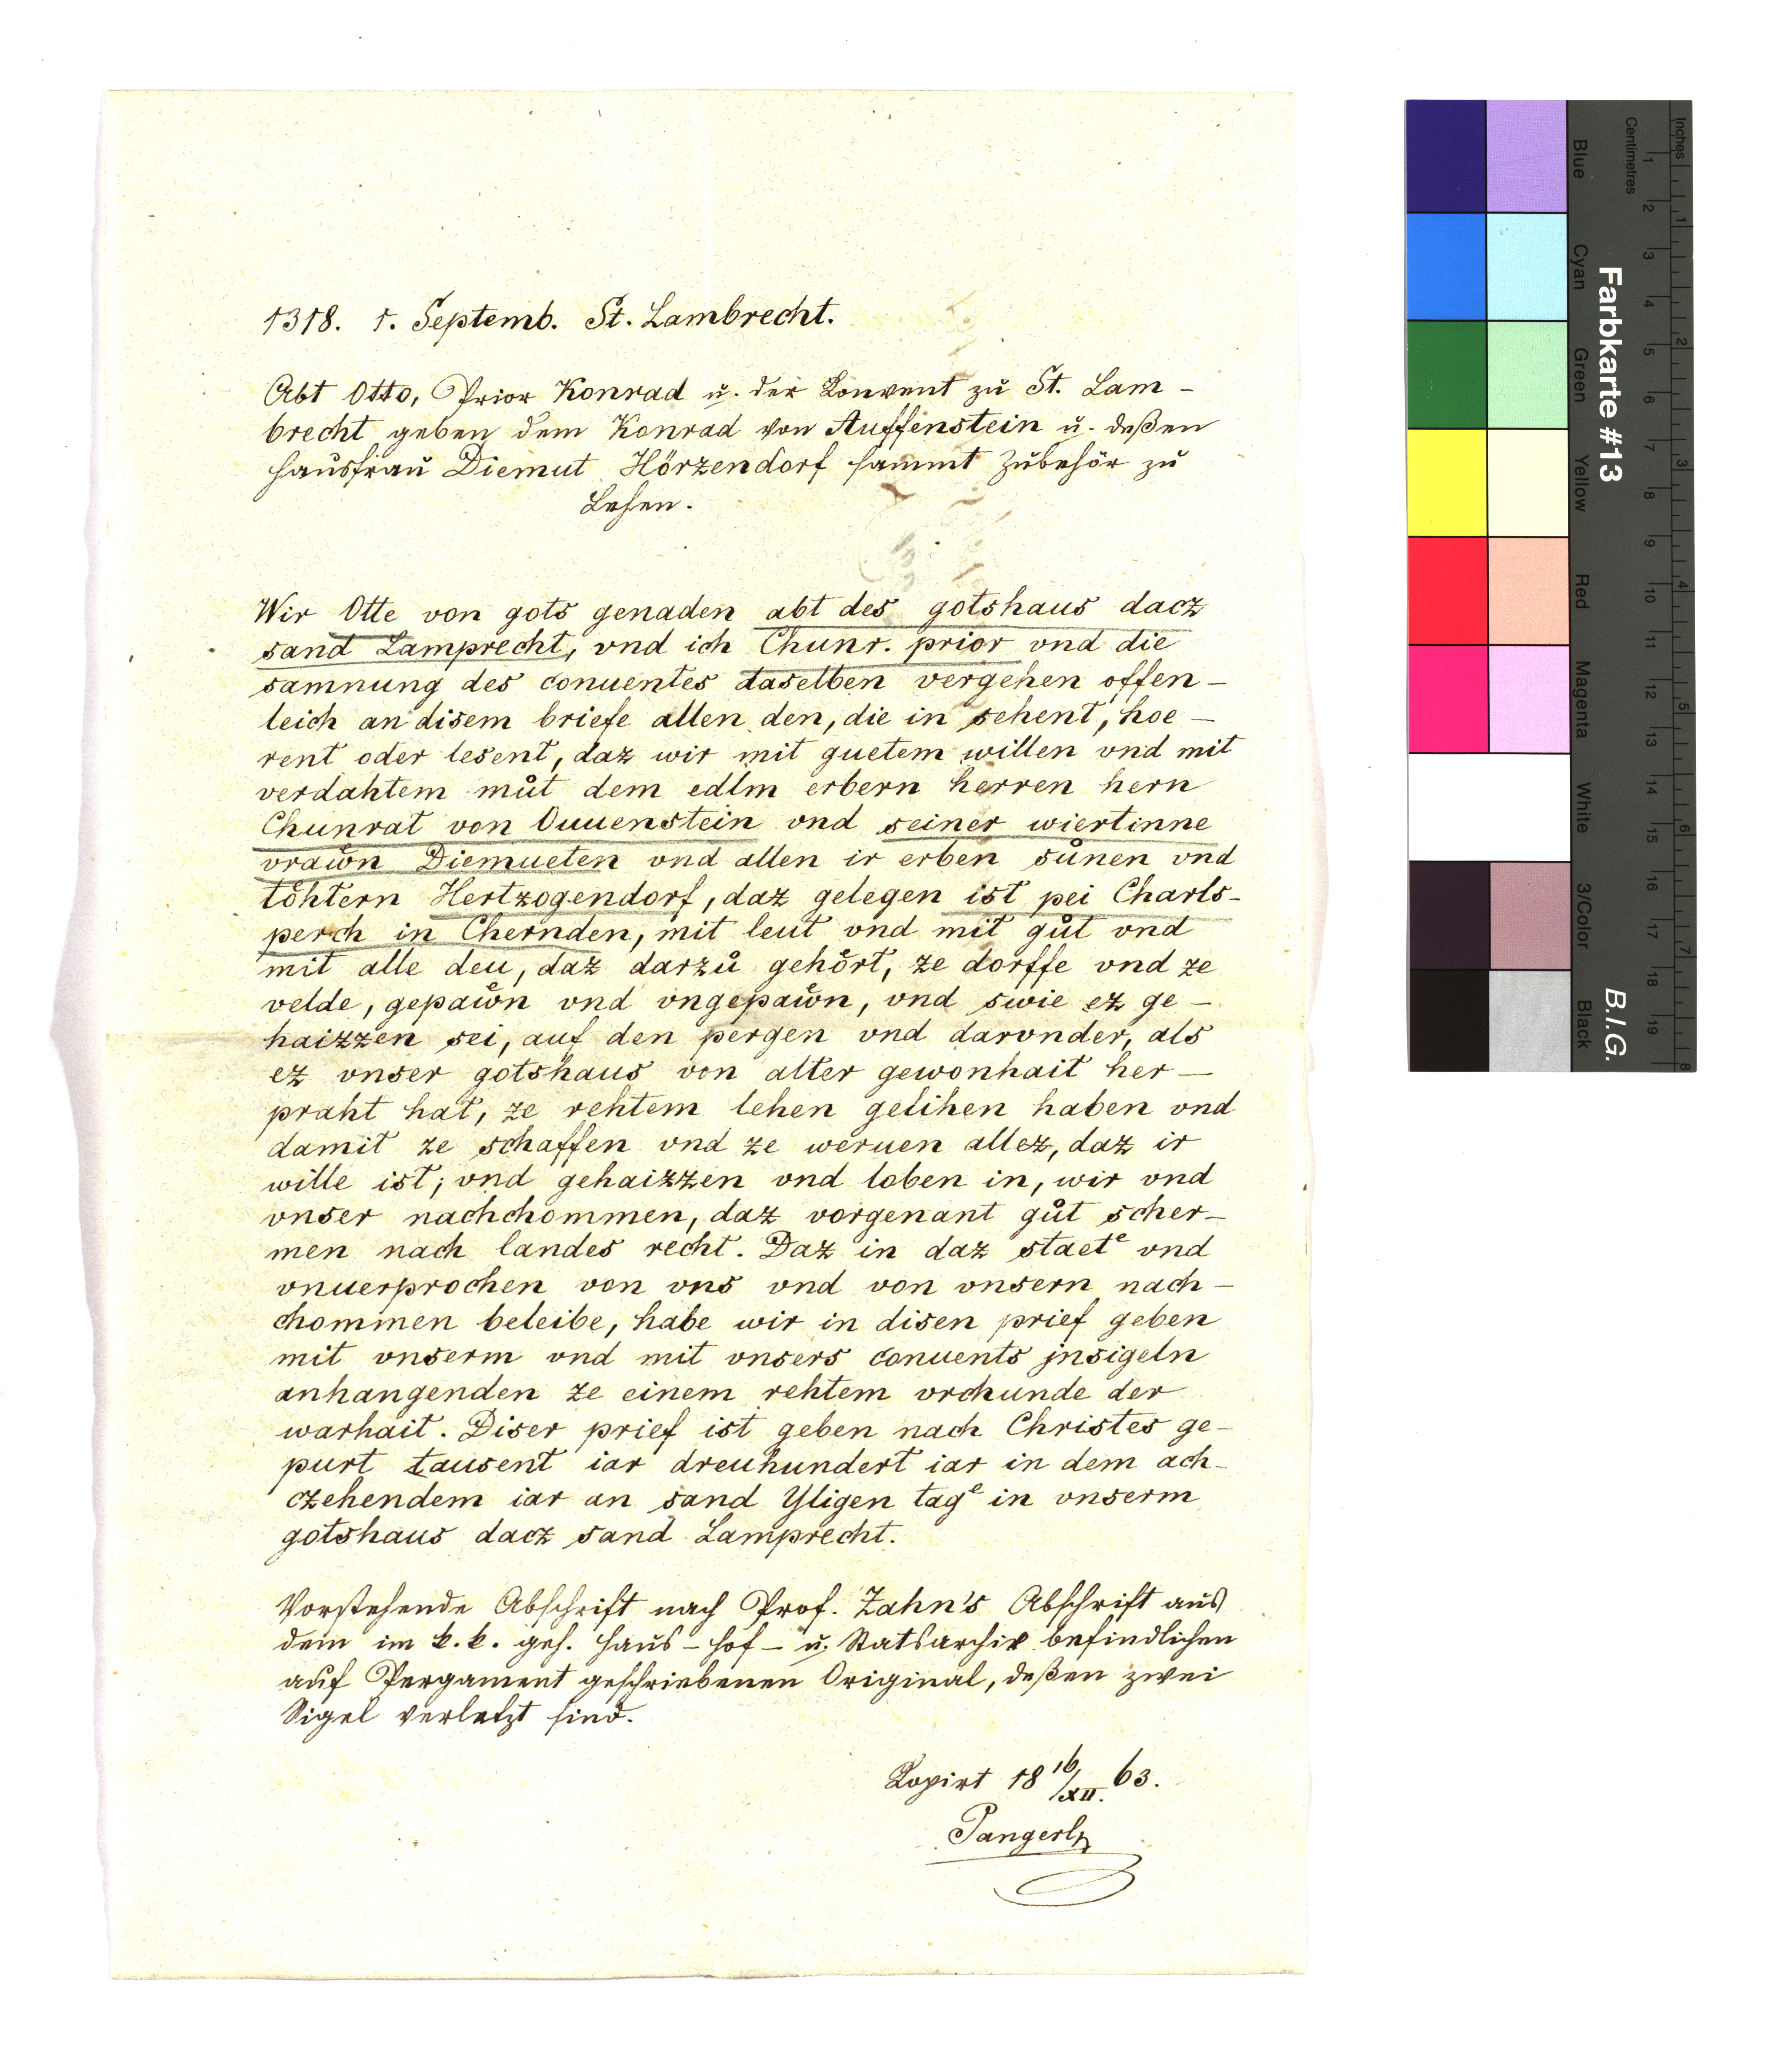 1318. 1. Septemb. St. Lambrecht.
Abt Otto, Prior Konrad u. der Konvent zu St. Lam-
brecht geben dem Konrad von Auffenstein u. deßen
Hausfrau Diemut Hörzendorf sammt Zubehör zu
Lehen.
Wir Otte von gots genaden abt des gotshaus dacz
sand Lamprecht, vnd ich Chunr. prior vnd die
samnung des conuentes daselben vergehen offen-
leich an disem briefe allen den, die in sehent, hoe-
rent oder lesent, daz wir mit guetem willen vnd mit
verdahtem můt dem edlm erbern herren hern
Chunrat von Ouuenstein vnd seiner wiertinne
vrawͦn Diemueten vnd allen ir erben sůnen vnd
toͤhtern Hertzogendorf, daz gelegen ist pei Charls-
perch in Chernden, mit leut vnd mit gůt vnd
mit alle deu, daz darzů gehoͤrt, ze dorffe vnd ze
velde, gepawͦn vnd vngepawͦn, vnd swie ez ge-
haizzen sei, auf den pergen vnd darvnder, als
ez vnser gotshaus von alter gewonhait her-
praht hat, ze rehtem lehen gelihen haben vnd
damit ze schaffen vnd ze weruen allez, daz ir
wille ist; vnd gehaizzen vnd loben in, wir vnd
vnser nachchommen, daz vorgenant gůt scher-
men nach landes recht. Daz in daz staetᵉ vnd
vnuerprochen von vns vnd von vnsern nach-
chommen beleibe, habe wir in disen prief geben
mit vnserm vnd mit vnsers conuents jnsigeln
anhangenden ze einem rehtem vrchunde der
warhait. Diser prief ist geben nach Christes ge-
purt tausent iar dreuhundert iar in dem ach-
czehendem iar an sand Yligen tagᵉ in vnserm
gotshaus dacz sand Lamprecht.
Vorstehende Abschrift nach Prof. Zahn's Abschrift aus
dem im k. k. geh. Haus- Hof- u. Statsarchiv befindlichen
auf Pergament geschriebenen Original, deßen zwei
Sigel verletzt sind.
Kopirt 18 16/XII. 63.
Pangerl
Farbkarte #13
B.I.G.
Inches
1 2 3 4 5 6 7 8
Centimetres
1 2 3 4 5 6 7 8 9 10 11 12 13 14 15 16 17 18 19
Blue
Cyan
Green
Yellow
Red
Magenta
White
3/Color
Black